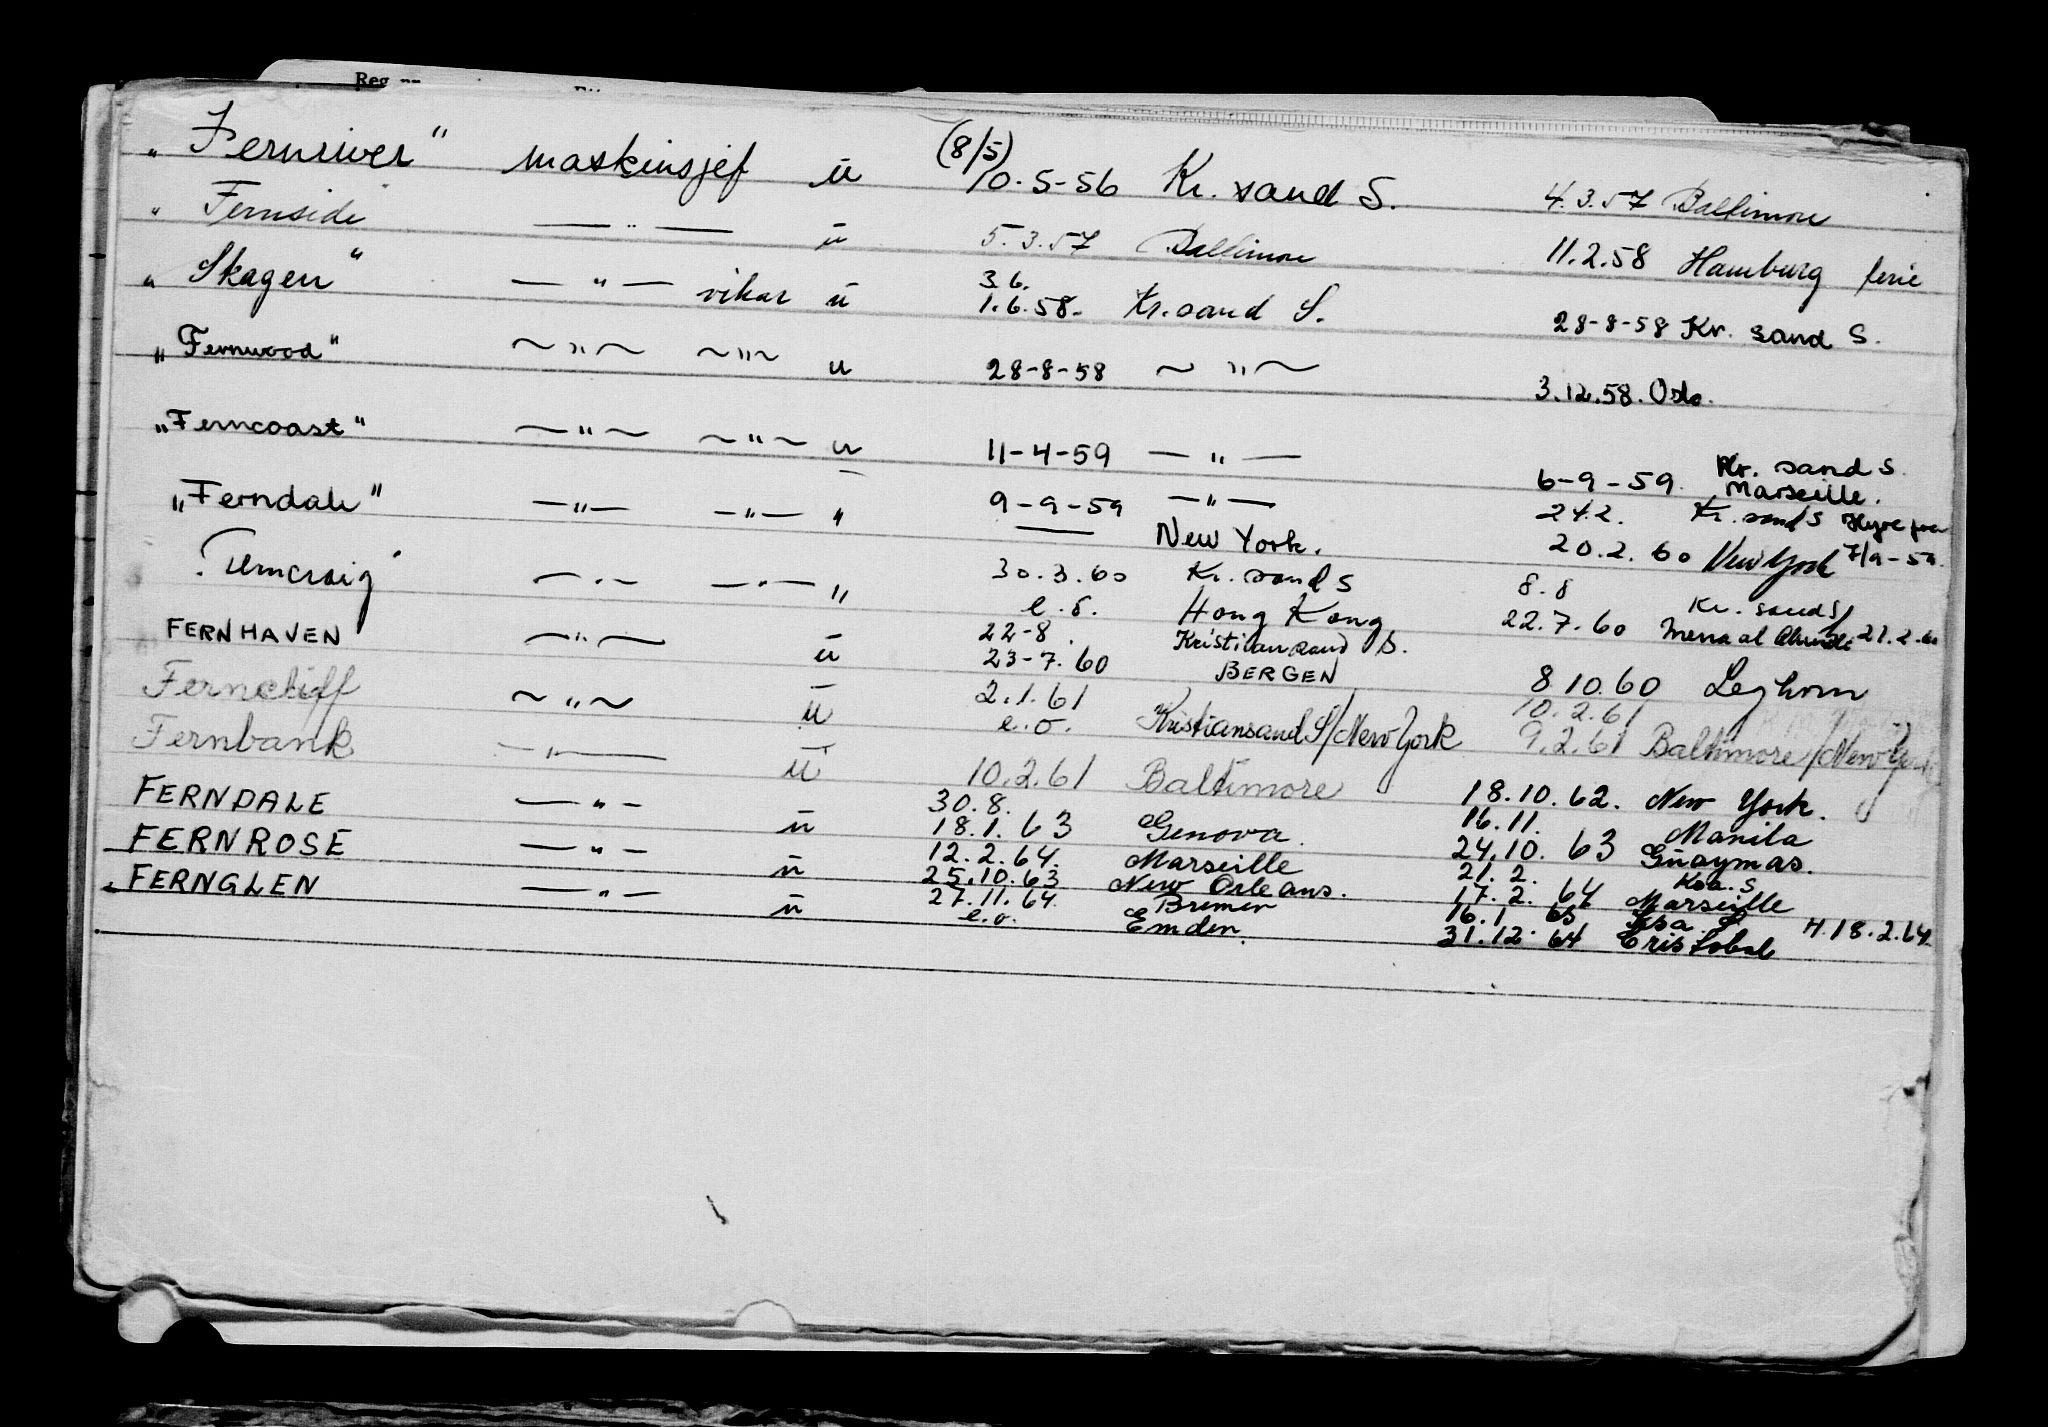 Reg. nr.
„ Fernriver " maskinsjef u (8/5) 10.5-56 Kr. sand S. 4.3.57 Baltimore
" Fernside — " — u 5.3.57 Baltimore 11.2.58 Hamburg ferie
" Skagen " — " — vikar u 3.6. 1.6.58. Kr. sand S. 28-8-58 Kr. sand S.
„ Fernwood " ~ " ~ ~ " ~ u 28-8-58 ~ " ~ 3.12.58. Oslo.
„ Ferncoast " ~ " ~ ~ " ~ u 11-4-59 — " — 6-9-59. Kr. sand S. Marseille.
„ Ferndale " — " — — " — " 9-9-59 — " — 24.2. Kr. sand S Hyre fra 7/9-59.
— New York. 20.2.60 New York
Ferncraig — " — — " — " 30.3.60 Kr. sand S 8.8 Kr. sand S/
e.o. Hong Kong 22.7.60 Mena al 21.2.60
FERNHAVEN — " — u 22-8. Kristiansand S.
23-7.60 BERGEN 8.10.60 Leghorn
Ferncliff ~ " ~ u 2.1.61 e.o. Kristiansand S/New York 10.2.61 9.2.61 Baltimore/New York
Fernbank — " — u 10.2.61 Baltimore 18.10.62. New York.
FERNDALE — " — u 30.8. 18.1.63 Genova. 16.11. Manila
24.10.63 Guaymas.
FERNROSE — " — u 12.2.64. Marseille 21.2. Krs. S
25.10.63 New Orleans. 17.2.64 Marseille
FERNGLEN — " — u 27.11.64. Bremen 16.1 65 Krsa. S H.18.2.64
e.o. Emden. 31.12.64 Cristobal